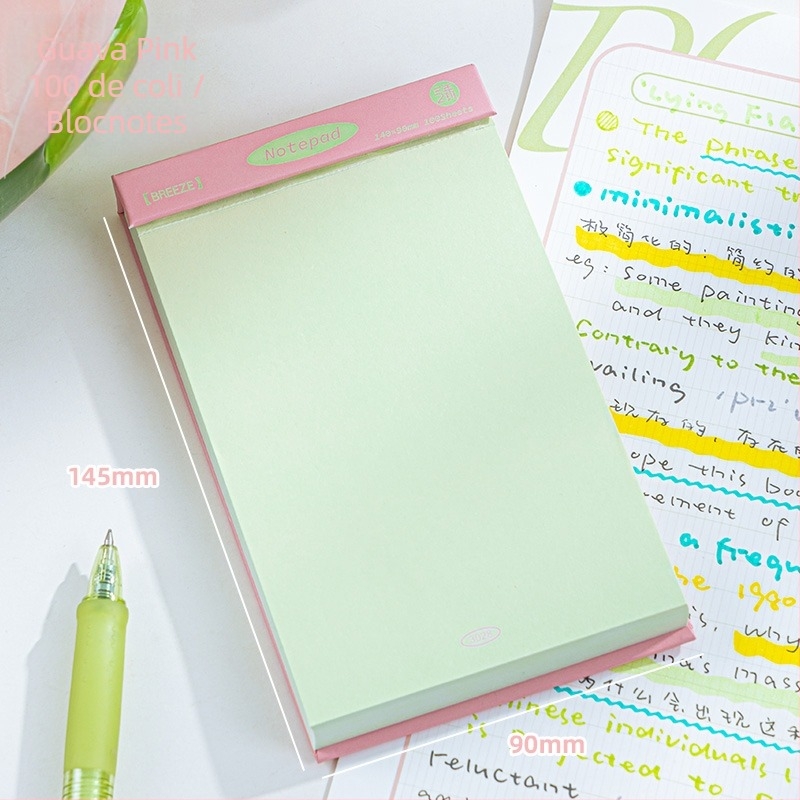 Guava Pink
100 de coli /
Blocnotes
Notepad
140×90mm 100Sheets
【BREEZE】
145mm
90mm
'Lying Fla
The phrase
significant tr
minimalisti
极简化的：简约的
eg: some painting
and they kin
Contrary to the
vailing
现存的，存在的
ope this boo
ement of
a frequ
he 1980
why
na's mass
为什么会出现这种
inese individuals
is
to
reluctant